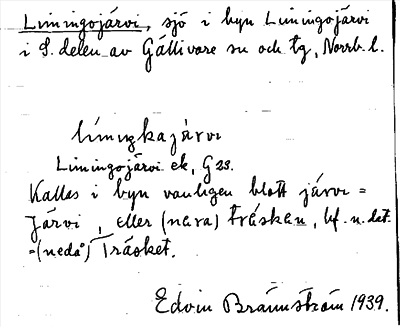 Liningojärvi, sjö i byn Liningojärvi
i S. delen av Gällivare sn och tg, Norrb. l.
Liningojärvi ek, G 23.
Kallas i byn vanligen blott järvi =
Järvi, eller (nara) träsken, bf. n. det.
=(nedå) Träsket.
Edvin Brännström 1939.